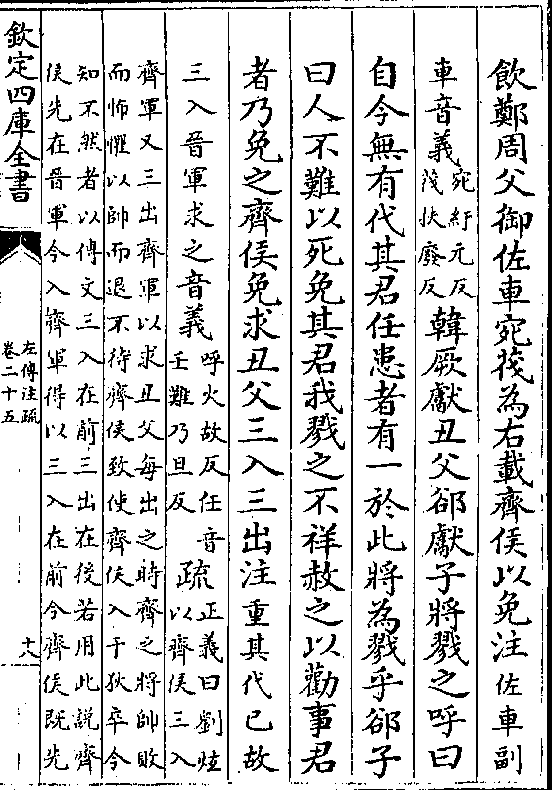 飲鄭周父御佐車宛茷為右載齊侯以免注佐車副
車音義宛紆元反
茷扶廢反
韓厥獻丑父郤獻子將戮之呼曰
自今無有代其君任患者有一於此將為戮乎郤子
曰人不難以死免其君我戮之不祥赦之以勸事君
者乃免之齊侯免求丑父三入三出注重其代己故
三入晉軍求之音義呼火故反任音
壬難乃旦反
疏正義曰劉炫
以齊侯三入
齊軍又三出齊軍以求丑父每出之時齊之將帥敗
而怖懼以帥而退不待齊侯致使齊侯入于狄卒今
知不然者以傳文三入在前三出在後若用此說齊
侯先在晉軍今入齊軍得以三入在前今齊侯既先
欽定四庫全書
左傳注疏
卷二十五
十八